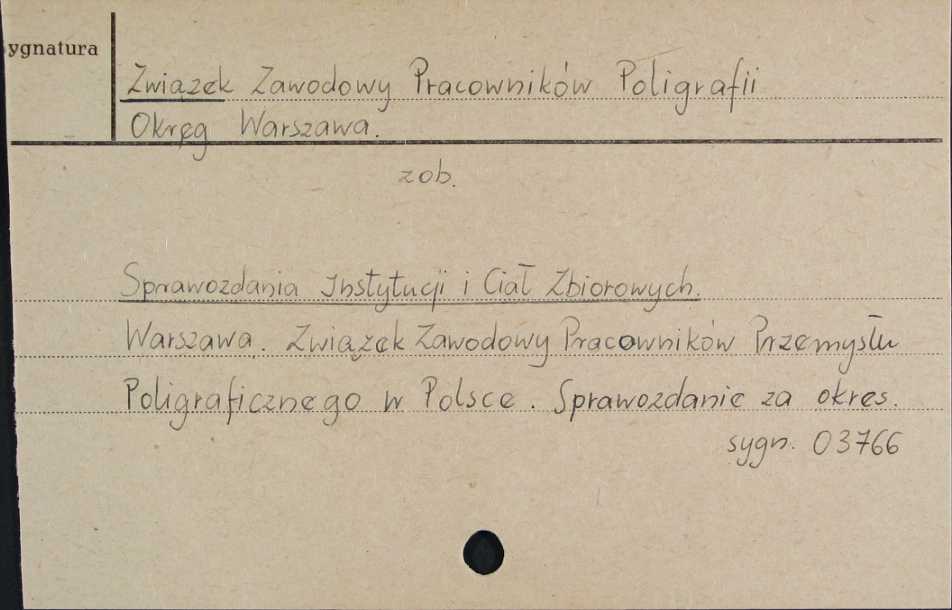 ygnatura
Związek Zawodowy Pracowników Poligrafii
Okręg Warszawa.
zob.
Sprawozdania Instytucji i Ciał Zbiorowych.
Warszawa. Związek Zawodowy Pracowników Przemysłu
Poligraficznego w Polsce. Sprawozdanie za okres.
sygn. 03766